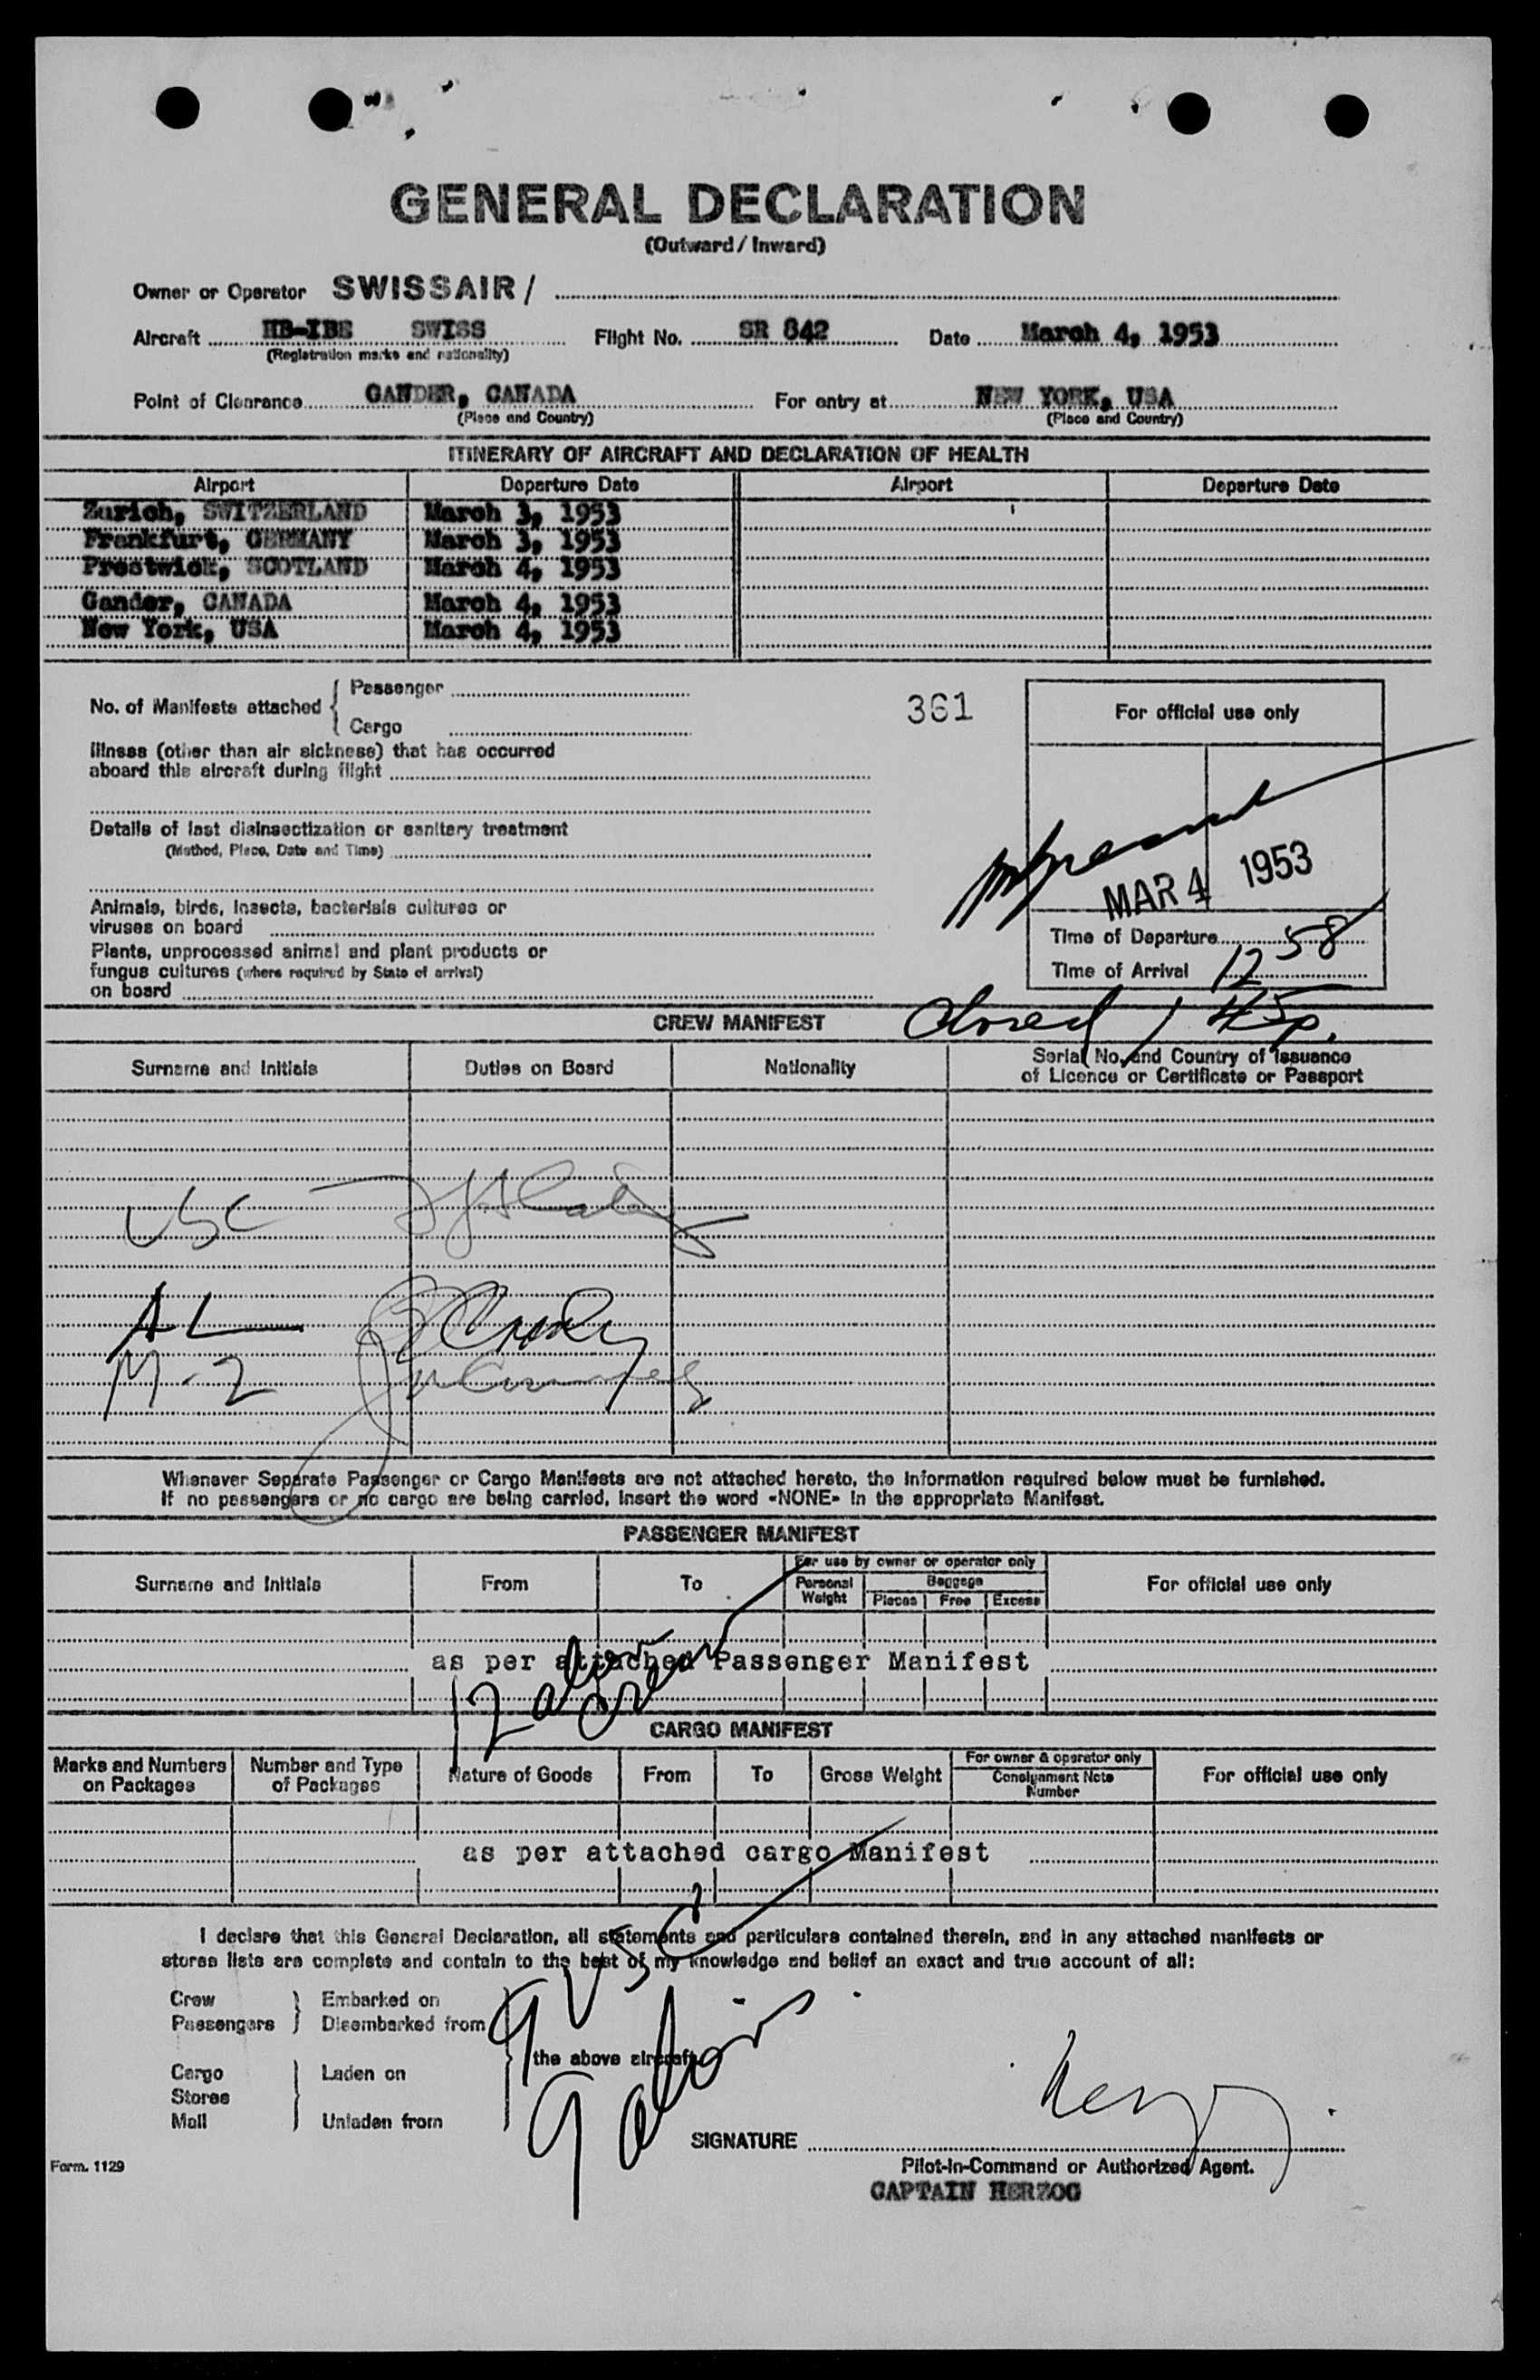 GENERAL DECLARATION
(Outward / Inward)
Owner or Operator SWISSAIR /
Aircraft HB-IBE SWISS Flight No. SR 842 Date March 4, 1953
(Registration marks and nationality)
Point of Clearance GANDER, CANADA For entry at NEW YORK, USA
(Place and Country) (Place and Country)
ITINERARY OF AIRCRAFT AND DECLARATION OF HEALTH
Airport Departure Date Airport Departure Date
Zurich, SWITZERLAND March 3, 1953
Frankfurt, GERMANY March 3, 1953
Prestwick, SCOTLAND March 4, 1953
Gander, CANADA March 4, 1953
New York, USA March 4, 1953
No. of Manifests attached Passenger
Cargo
361
For official use only
Illness (other than air sickness) that has occurred
aboard this aircraft during flight
Details of last disinsectization or sanitary treatment
(Method, Place, Date and Time)
MAR 4 1953
Animals, birds, insects, bacterials cultures or
viruses on board
Plants, unprocessed animal and plant products or
fungus cultures (where required by State of arrival)
on board
Time of Departure
Time of Arrival 12 58
Closed 1 45p.
CREW MANIFEST
Surname and Initials Duties on Board Nationality Serial No. and Country of Issuance
of Licence or Certificate or Passport
USC
AL
M-2
Whenever Separate Passenger or Cargo Manifests are not attached hereto, the information required below must be furnished.
If no passengers or no cargo are being carried, insert the word «NONE» in the appropriate Manifest.
PASSENGER MANIFEST
Surname and Initials From To For use by owner or operator only For official use only
Personal Weight Baggage
Pieces Free Excess
as per attached Passenger Manifest
12 alien
Crew
CARGO MANIFEST
Marks and Numbers on Packages Number and Type of Packages Nature of Goods From To Gross Weight For owner & operator only For official use only
Consignment Note Number
as per attached cargo Manifest
I declare that this General Declaration, all statements and particulars contained therein, and in any attached manifests or
stores lists are complete and contain to the best of my knowledge and belief an exact and true account of all:
9 USC
Crew Embarked on
Passengers Disembarked from
the above aircraft
9 aliens
Cargo Laden on
Stores
Mail Unladen from
SIGNATURE Herzog
Form. 1129
Pilot-in-Command or Authorized Agent.
CAPTAIN HERZOG